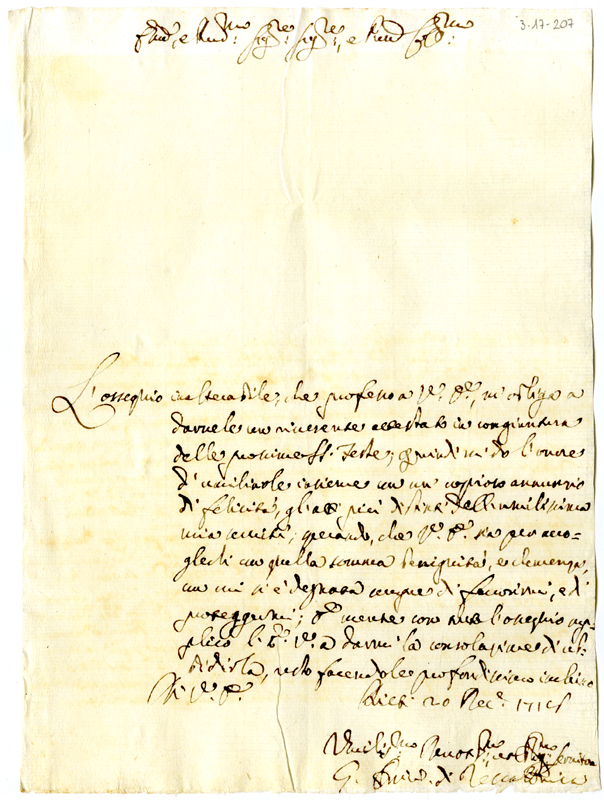 3-17-207
L'ossequio inalterabile, che professo a V.ª E.ª, m'obliga a
darnele un riverente attestato in congiuntura
delle prossime SS. Feste; quindi mi do l'onore
di umiliarle insieme con un copioso annunzio
di felicità, gli atti più distinti dell'umilissima
mia servitù; sperando, che V.ª E.ª sia per acco-
glierli con quella somma benignità, e clemenza,
con cui si è degnata sempre di favorirmi, e di
proteggermi; E mentre con tutto l'ossequio sup-
plico l'E.ª V.ª a darmi la consolazione di
ubbidirla, resto facendole profondissimo inchino
Di V.ª E.ª
Rieti 20 Dec.e
Umiliss.mo Devot.mo et Servitore
G. di